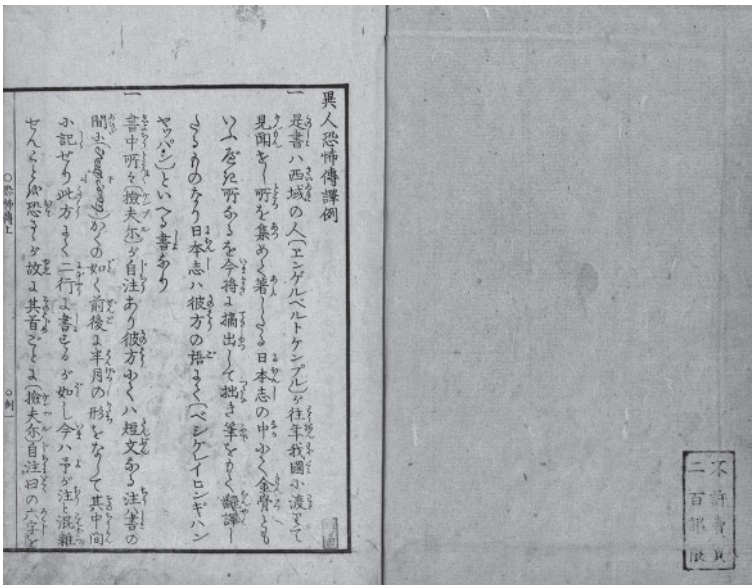 異人恐怖傳譯例
一 是書ハ西域の人〔ヱンゲルベルトケンプル〕が往年我國に渡りて
見聞をし所を集めて著したる日本志の中にて金骨とも
いふべき所なるを今将に摘出して拙き筆をもて翻譯し
たるものなり日本志ハ彼方の語にて〔ベシケレイヒンギハン
ヤッパン〕といへる書なり
一 書中所々〔撿夫尓〕が自注あり彼方にてハ短文なる注ハ書の
間に かくの如く前後に半月の形をなして其中間
に記せり此方にて二行に書するが如し今ハ予が注と混雑
せんことを恐るゝが故に其首ごとに〔撿夫尓〕自注曰の六字を
○恐怖傳上
○例一
不許賣買
二百部限